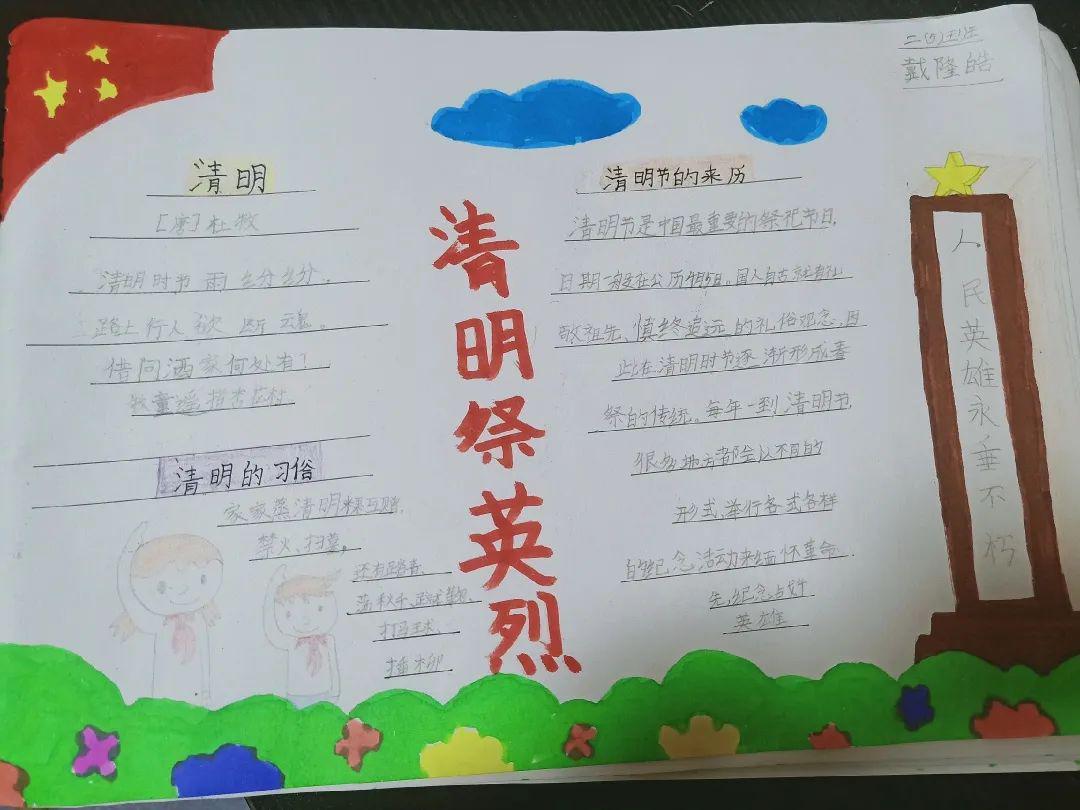 二(5)班
戴隆皓
清明
[唐]杜牧
清明时节雨纷纷。
路上行人欲断魂。
借问酒家何处有？
牧童遥指杏花村
清明的习俗
家家蒸清明粿互赠
禁火、扫墓。
还有踏青、
荡秋千、蹴鞠、
打马球、
插柳
清明祭英烈
清明节的来历
清明节是中国最重要的祭祀节日,
日期一般在公历4月5日。国人自古就有
敬祖先、慎终追远的礼俗观念,因
此在清明时节逐渐形成着
祭的传统。每年一到清明节
很多地方都会以不同的
形式,举行各式各样
的纪念活动来缅怀革命
先,纪念
英雄
人民英雄永垂不朽